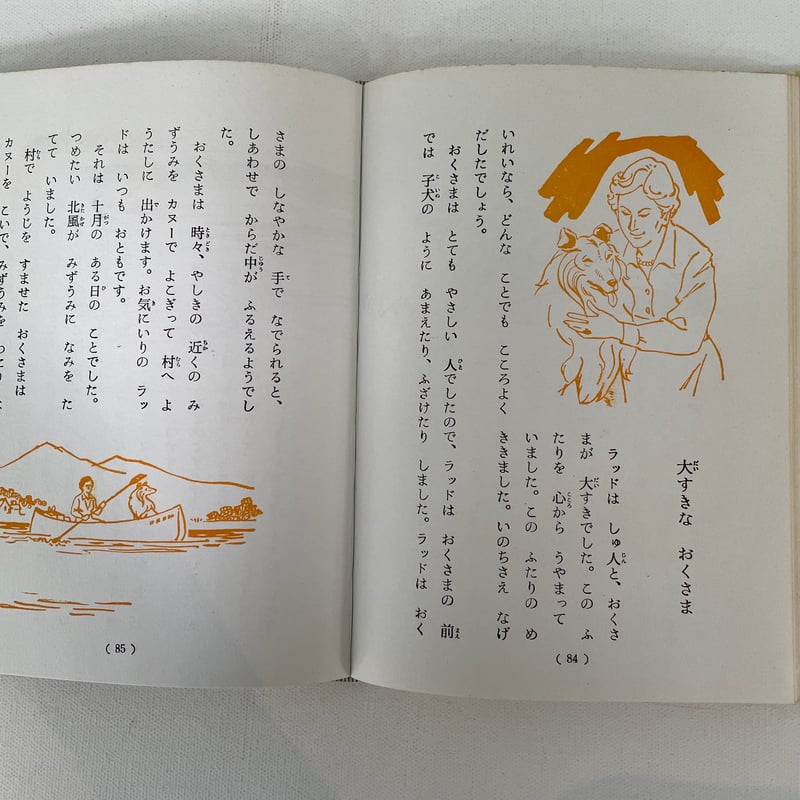 大すきな おくさま
ラッドは しゅ人と、おくさ
まが 大すきでした。この ふ
たりを 心から うやまって
いました。この ふたりの め
いれいなら、どんな ことでも こころよく ききました。いのちさえ なげ
だしたでしょう。
おくさまは とても やさしい 人でしたので、ラッドは おくさまの 前
では 子犬の ように あまえたり、ふざけたり しました。ラッドは おく
(84)
さまの しなやかな 手で なでられると、
しあわせで からだ中が ふるえるようでし
た。
おくさまは 時々、やしきの 近くの み
ずうみを カヌーで よこぎって 村へ よ
うたしに 出かけます。お気にいりの ラッ
ドは いつも おともです。
それは 十月の ある日の ことでした。
つめたい 北風が みずうみに なみを た
てて いました。
村で ようじを すませた おくさまは
カヌーを こいで、みずうみを
(85)